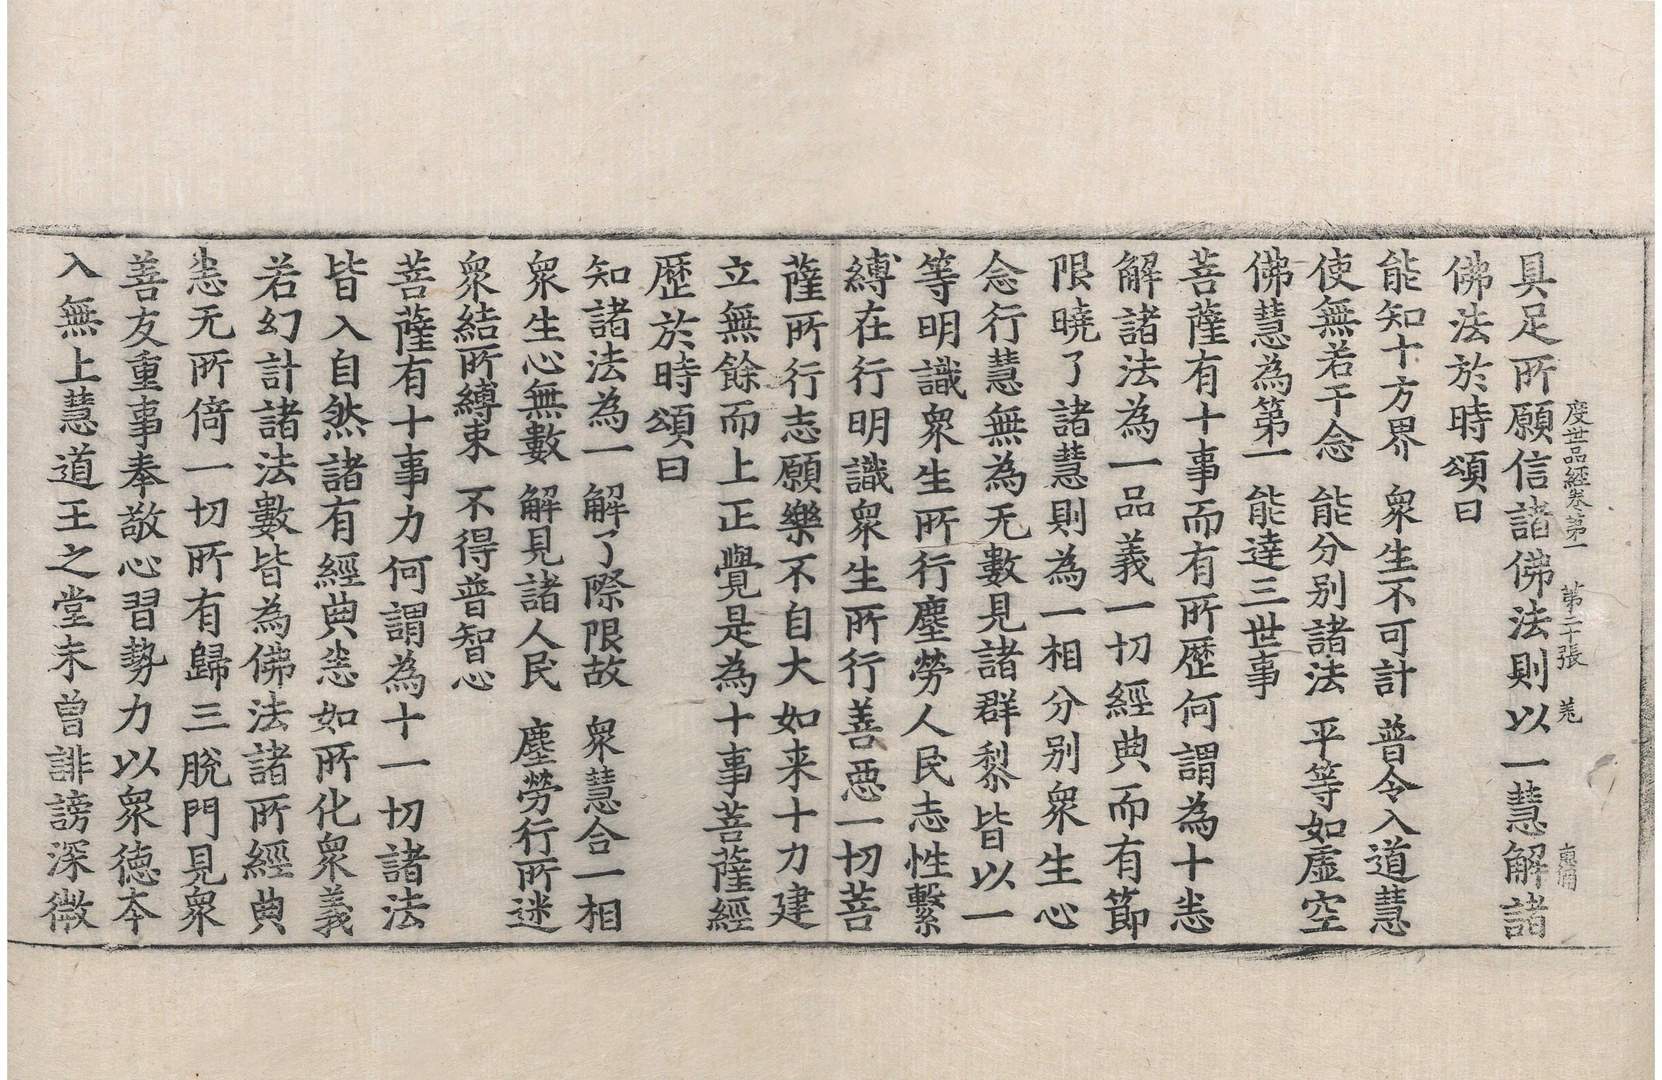 度世品經卷第一　第二十張　羌
具足所願信諸佛法則以一慧解諸
佛法於時頌曰
能知十方界　衆生不可計　普令入道慧
使無若干念　能分别諸法　平等如虛空
佛慧為第一　能達三世事
菩薩有十事而有所歷何謂為十悉
解諸法為一品義一切經典而有節
限曉了諸慧則為一相分别衆生心
念行慧無為无數見諸群黎皆以一
等明識衆生所行塵勞人民志性繫
縛在行明識衆生所行善惡一切菩
薩所行志願樂不自大如来十力建
立無餘而上正覺是為十事菩薩經
歷於時頌曰
知諸法為一　解了際限故　衆慧合一相
衆生心無數　解見諸人民　塵勞行所迷
衆結所縛束　不得普智心
菩薩有十事力何謂為十一切諸法
皆入自然諸有經典悉如所化衆義
若幻計諸法數皆為佛法諸所經典
悉无所倚一切所有歸三脫門見衆
善友重事奉敬心習勢力以衆德本
入無上慧道王之堂未曾誹謗深微